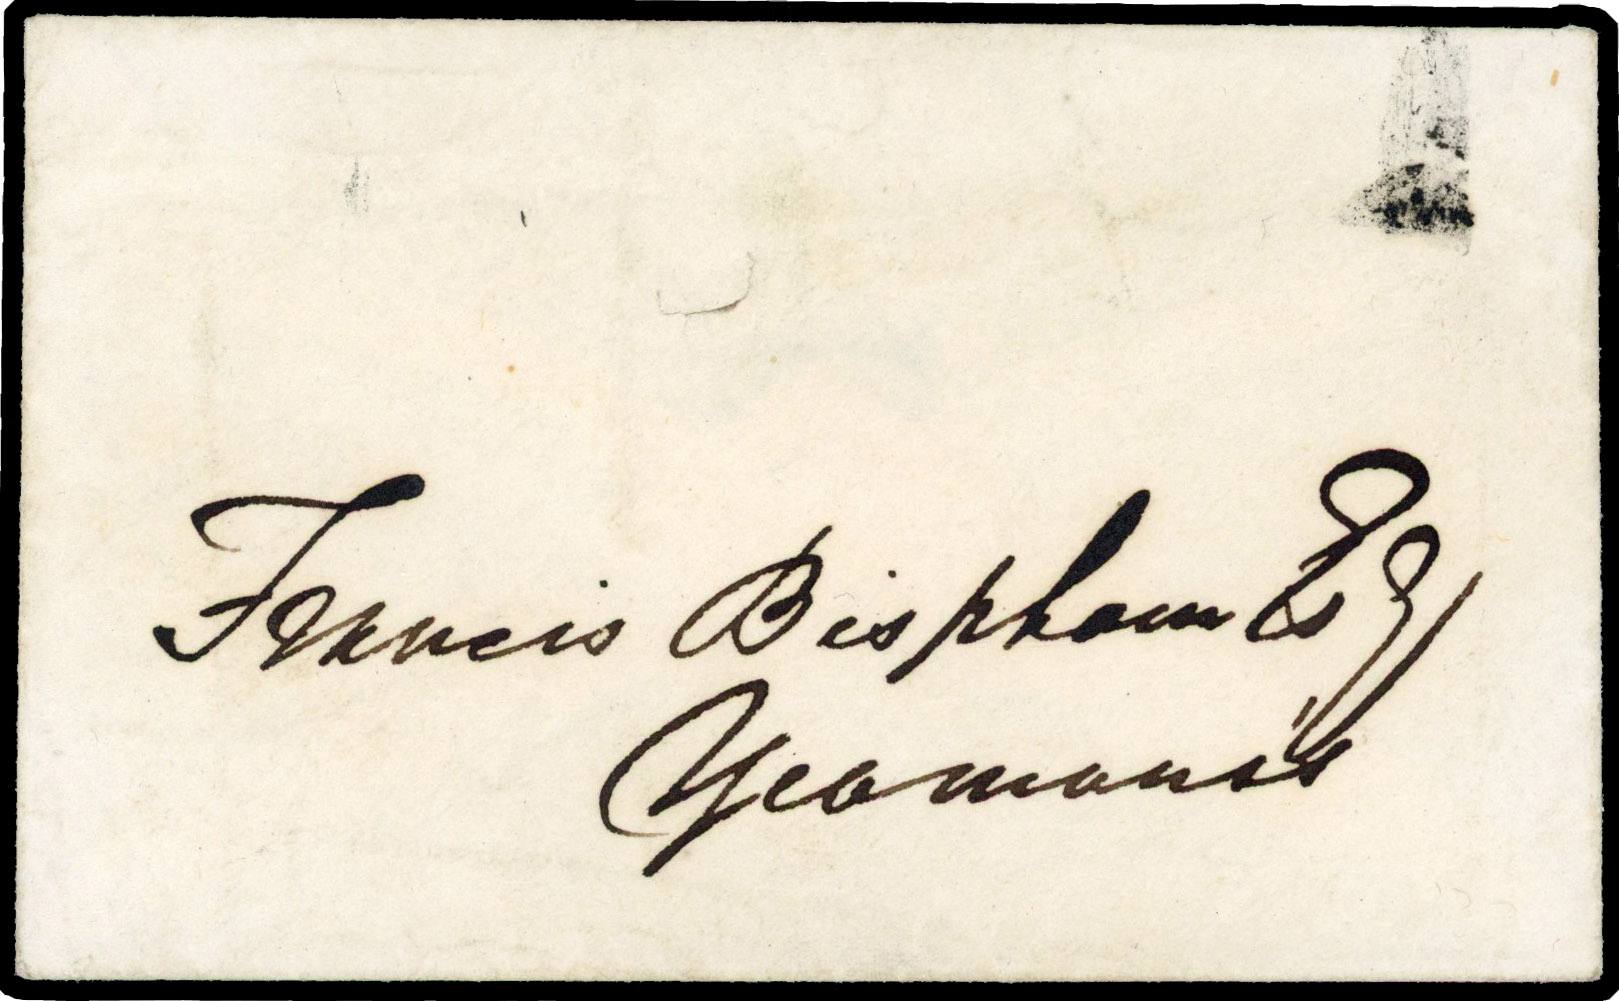 Francis Bispham Esq
Yeoman's